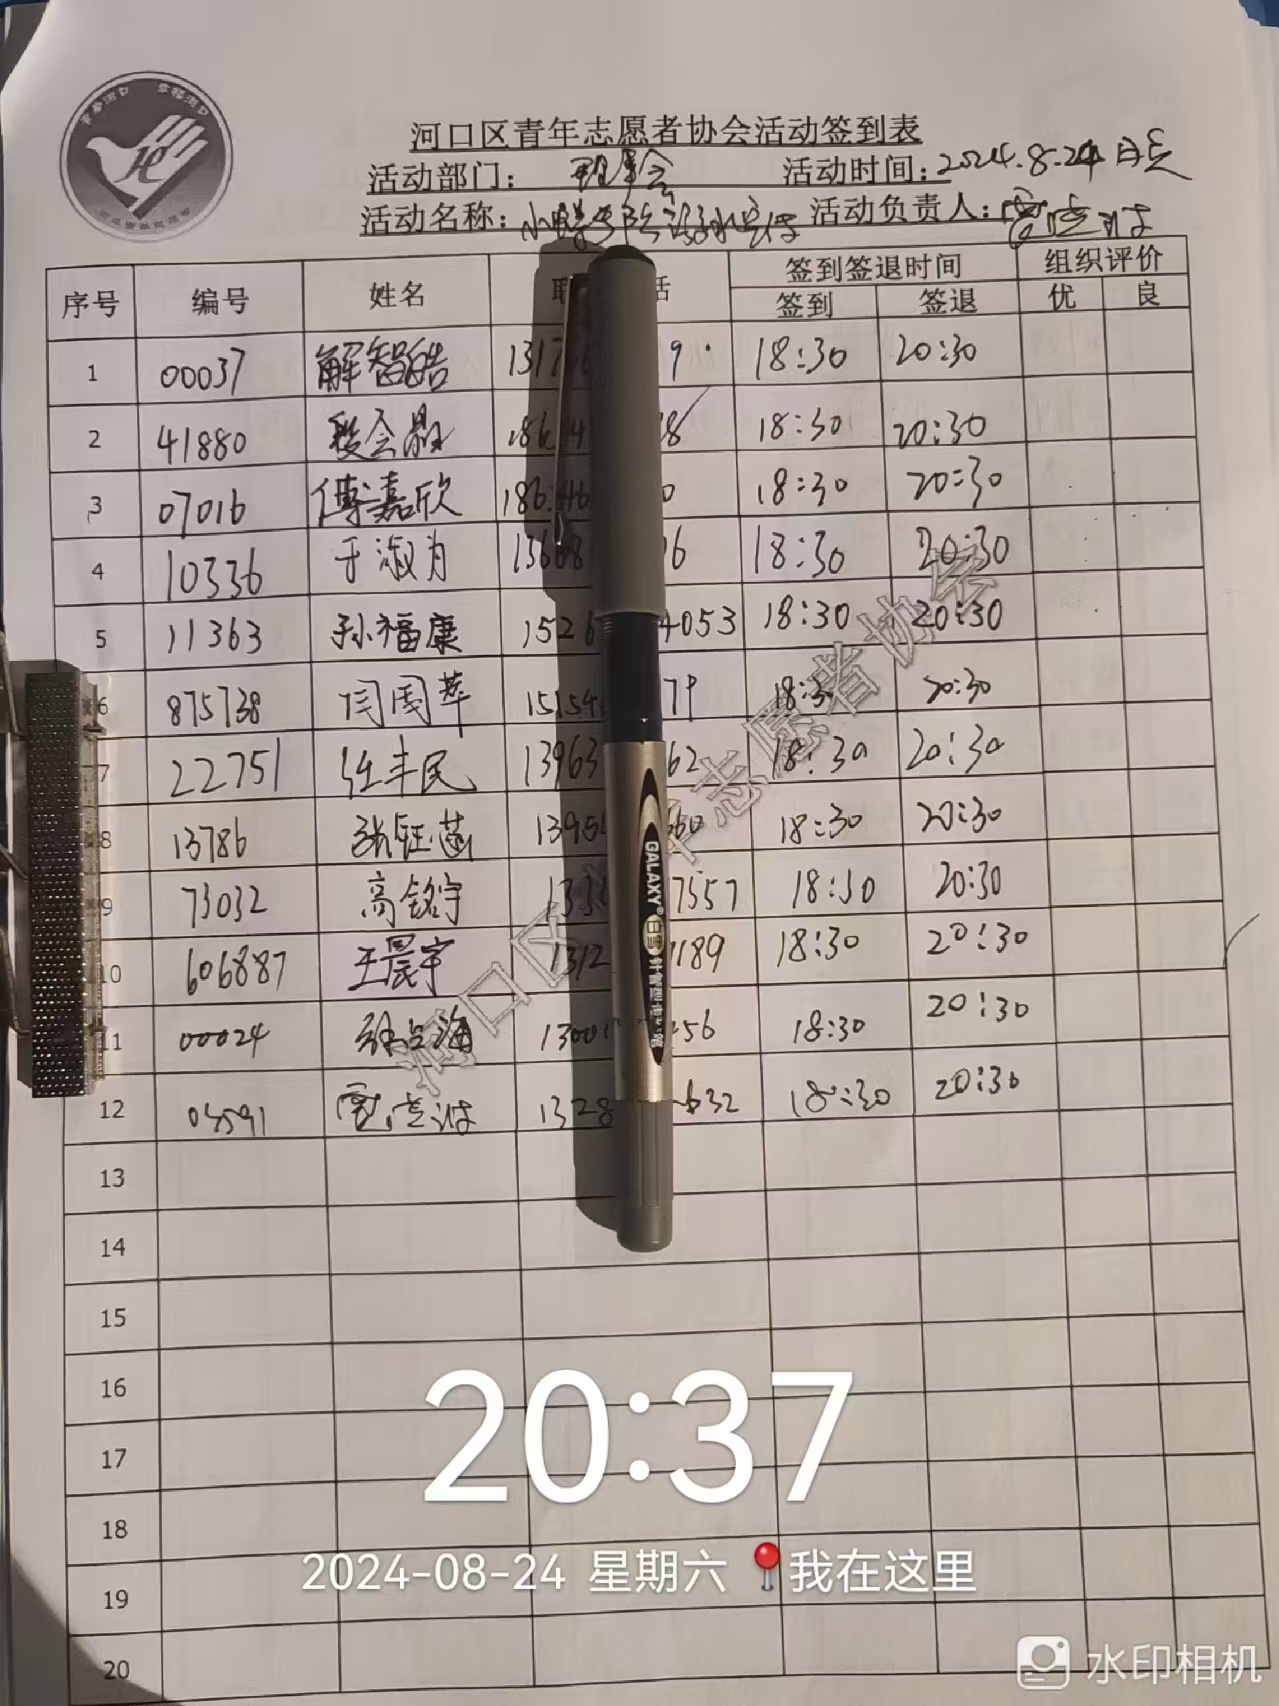 河口区青年志愿者协会活动签到表
活动部门： 理事会 活动时间：2024.8.24
活动名称： 活动负责人：
序号 编号 姓名 联 话 签到签退时间 组织评价
签到 签退 优 良
1 00037 解智皓 131 9 18:30 20:30
2 41880 段会 186 4 8 18:30 20:30
3 07016 傅嘉欣 186 46 0 18:30 20:30
4 10336 于淑月 13668 6 18:30 20:30
5 11363 孙福康 1526 4053 18:30 20:30
6 875738 闫周苹 15154 79 18:30 20:30
7 22751 任丰民 13963 62 18:30 20:30
8 13786 张钰菡 1395 60 18:30 20:30
9 73032 高铭宇 133 7557 18:30 20:30
10 606887 王晨宇 1312 1189 18:30 20:30
11 00024 1300 56 18:30 20:30
12 1328 632 18:30 20:30
13
14
15
16
17
18
19
20
GALAXY® 白雪
河口区 年志愿者协会
20:37
2024-08-24 星期六 📍我在这里
水印相机